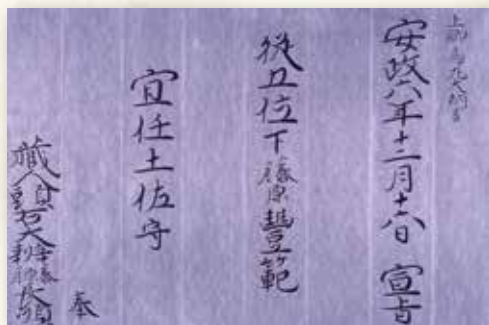 上卿
安政六年十二月十六日 宣旨
從五位下藤原豐範
宜任土佐守
藏人頭右大辨藤原長順
奉